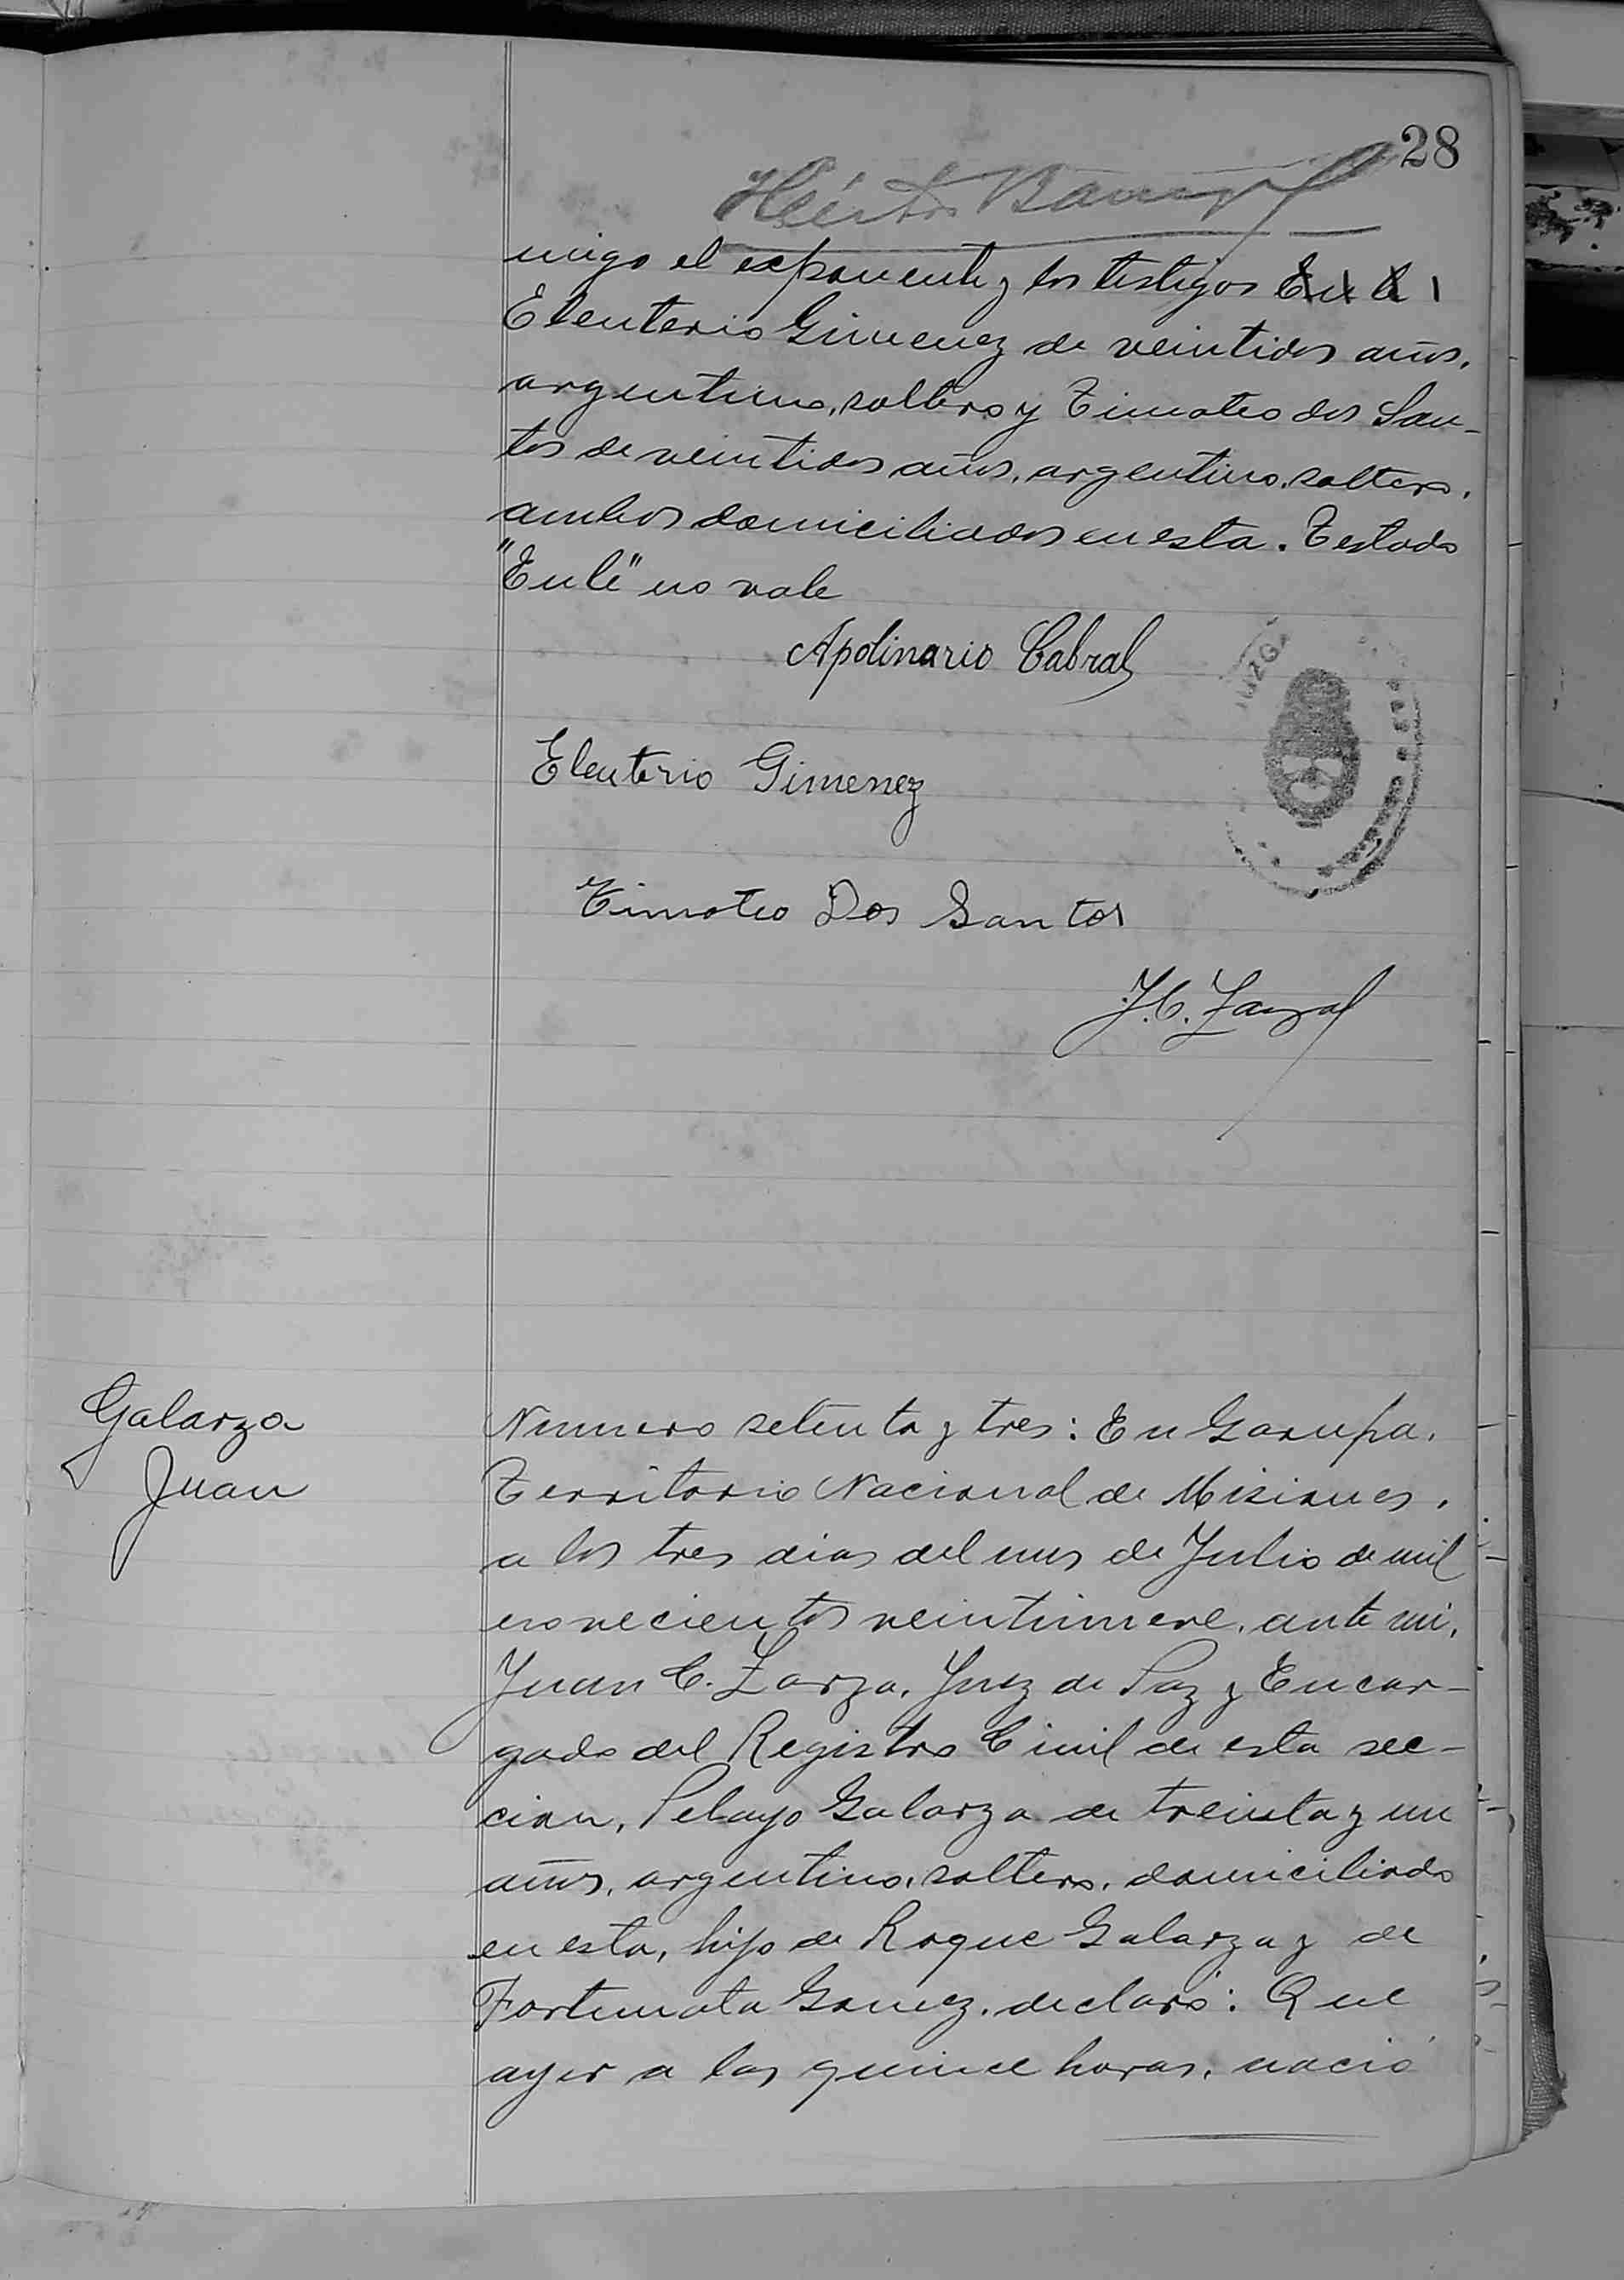 28
Héctor
migo el exponente y los testigos Eu le
Eleuterio Gimenez de veintidos años,
argentino, soltero y Timoteo dos San-
tos de veintidos años, argentino, soltero,
ambos domiciliados en esta. Testado
"Eu le" no vale
Apolinario Cabral
Eleuterio Gimenez
Timoteo Dos Santos
J. C. Zarza
JUZG
Galarza
Juan
Numero setenta y tres: En Garupa,
Territorio Nacional de Misiones,
a los tres dias del mes de Julio de mil
novecientos veintinueve, ante mi,
Juan C. Zarza, Juez de Paz y Encar-
gado del Registro Civil de esta sec-
cion, Pelayo Galarza de treinta y un
años, argentino, soltero, domiciliado
en esta, hijo de Roque Galarza y de
Fortunata Gomez, declaró: Que
ayer a las quince horas, nació